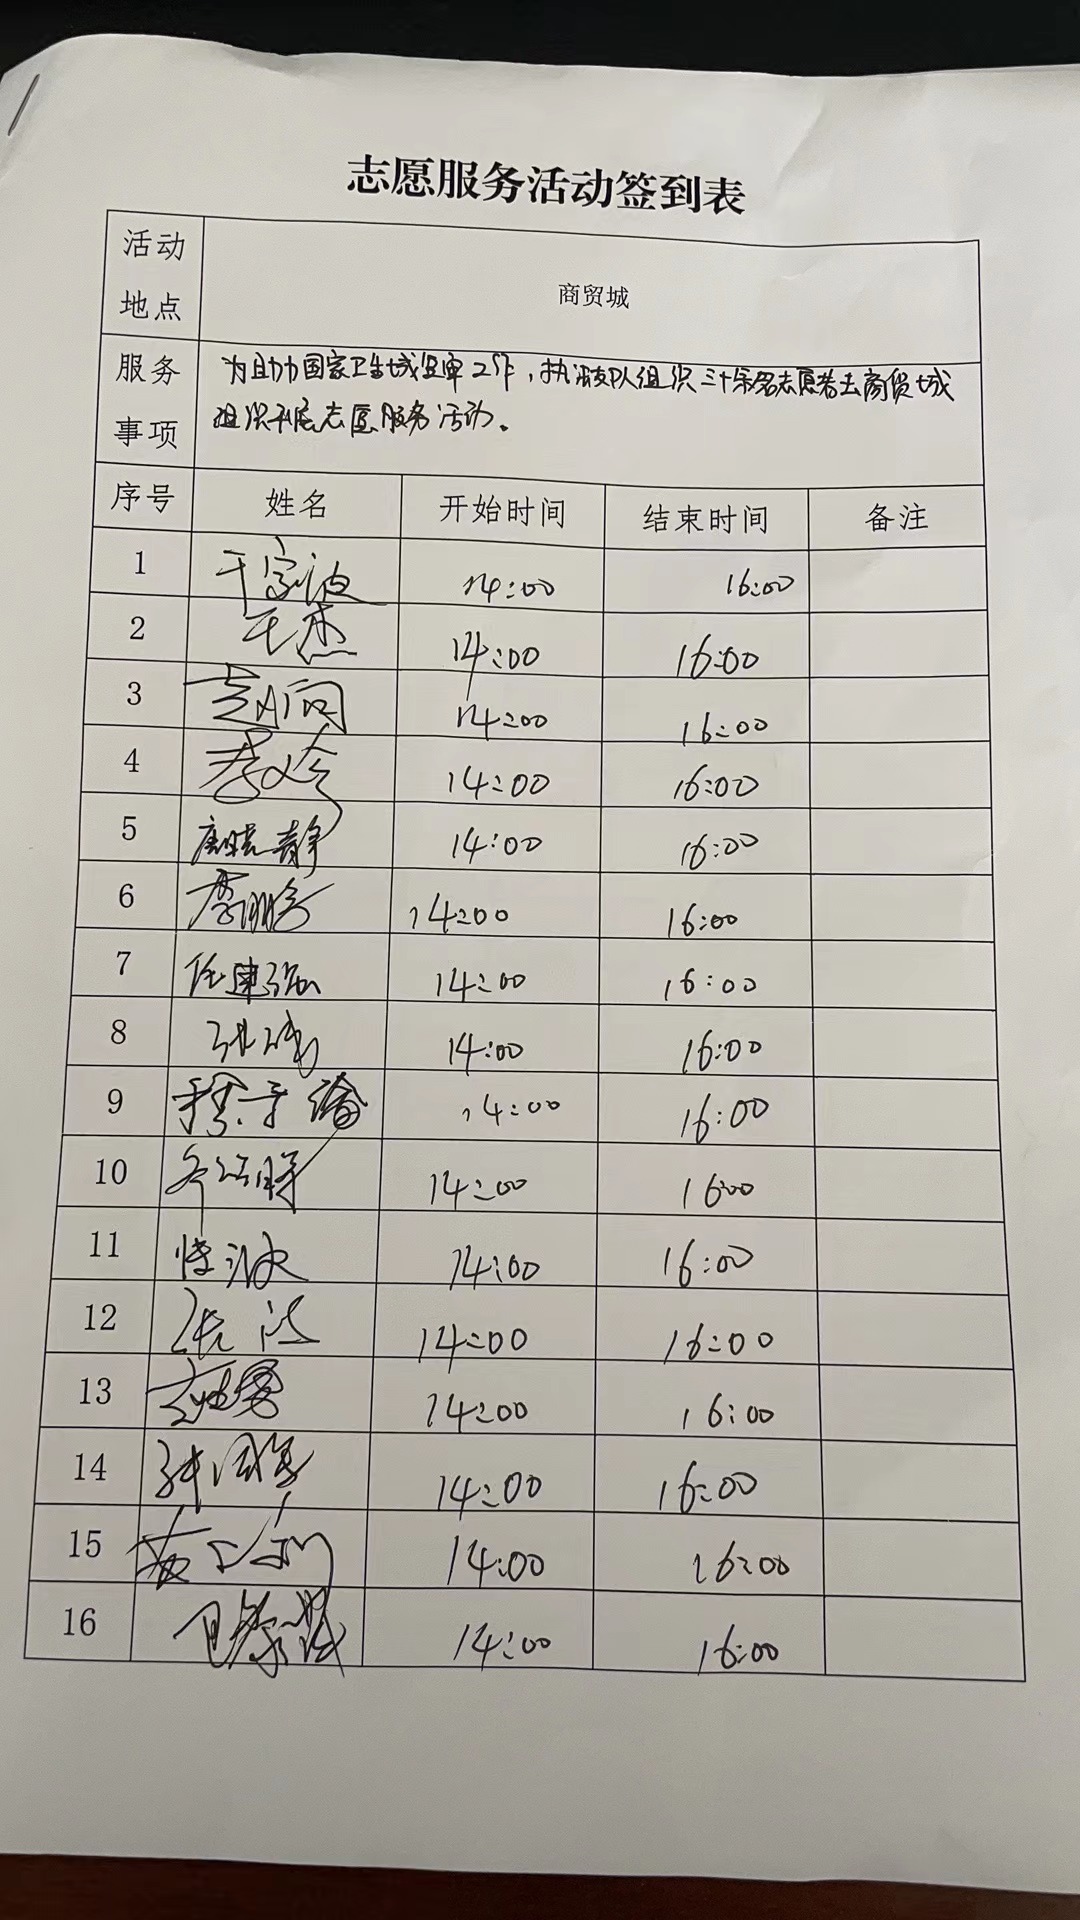 志愿服务活动签到表
活动地点 商贸城
服务事项 为助力国家卫生城复审工作，执法支队组织三十余名志愿者去商贸城
组织开展志愿服务活动。
序号 姓名 开始时间 结束时间 备注
1 14:00 16:00
2 王杰 14:00 16:00
3 14:00 16:00
4 14:00 16:00
5 唐晓静 14:00 16:00
6 李鹏 14:00 16:00
7 任建强 14:00 16:00
8 14:00 16:00
9 14:00 16:00
10 14:00 16:00
11 14:00 16:00
12 14:00 16:00
13 14:00 16:00
14 14:00 16:00
15 14:00 16:00
16 14:00 16:00